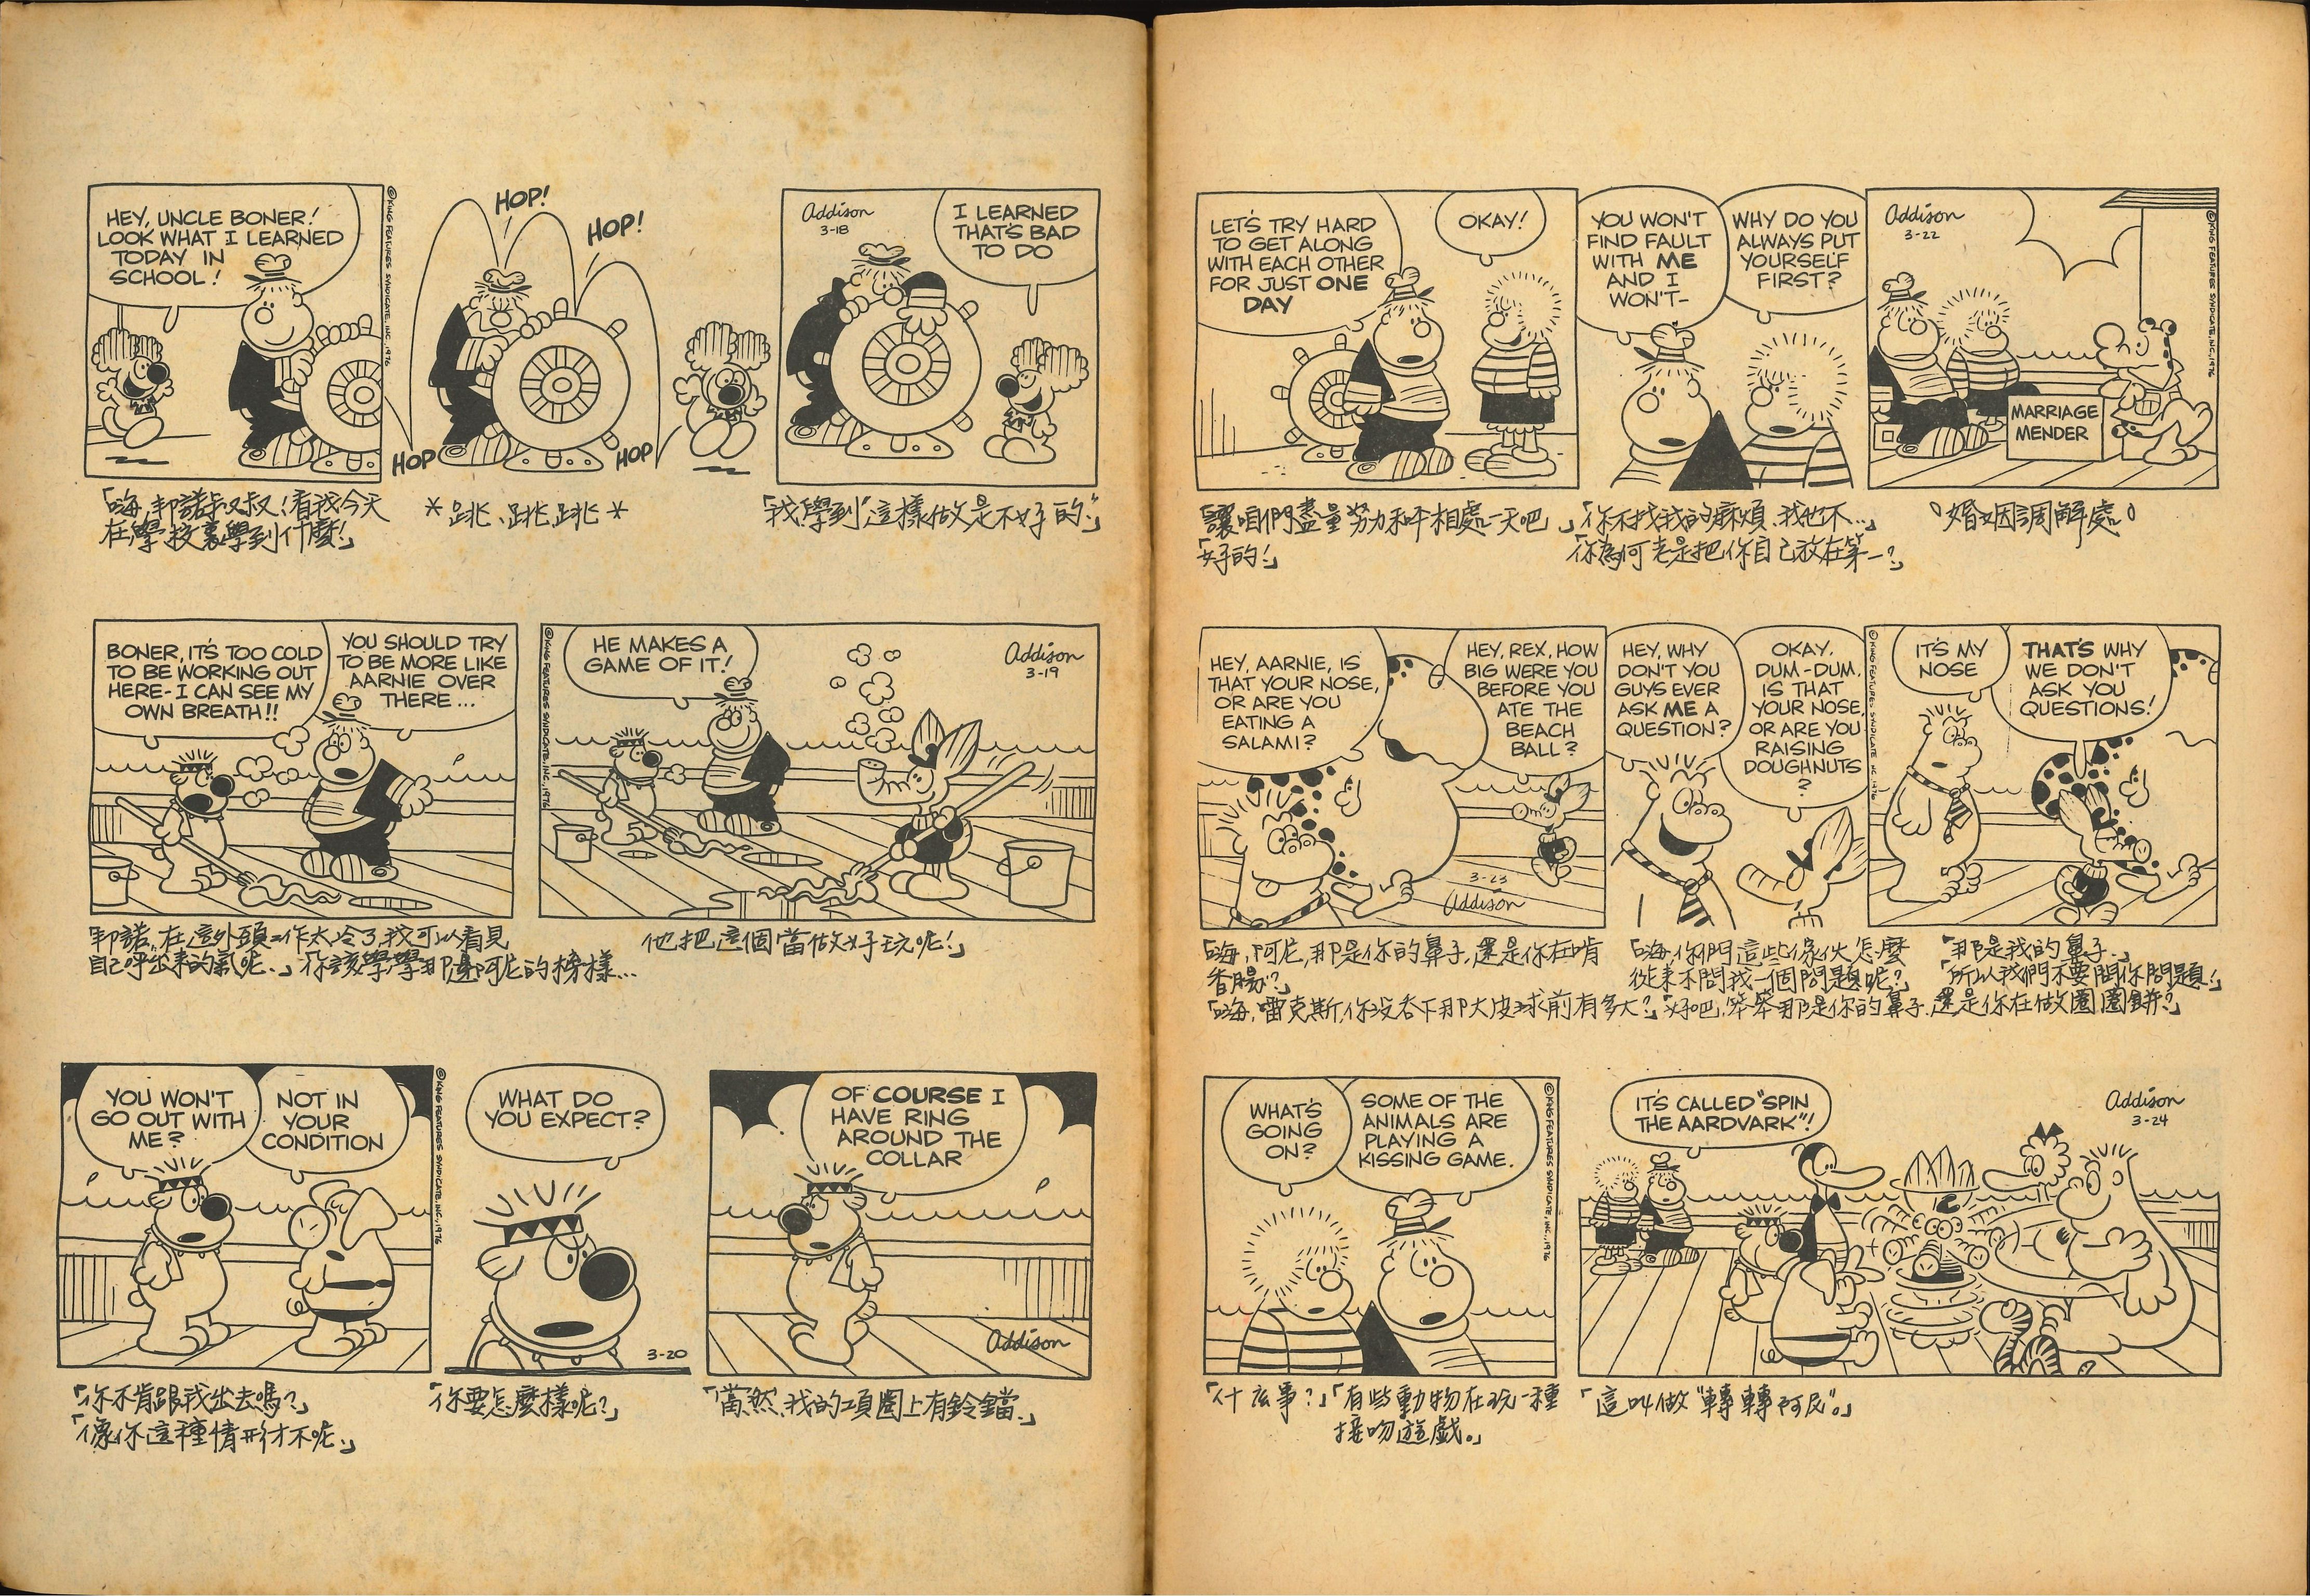 HEY, UNCLE BONER!
LOOK WHAT I LEARNED
TODAY IN
SCHOOL!
©KING FEATURES SYNDICATE, INC., 1976
HOP
HOP!
HOP!
HOP
Addison
3-18
I LEARNED
THAT'S BAD
TO DO
「嗨,邦諾叔叔!看我今天
在學校裏學到什麼!」
*跳、跳、跳*
「我學到"這樣做是不好的"」
BONER, IT'S TOO COLD
TO BE WORKING OUT
HERE- I CAN SEE MY
OWN BREATH!!
YOU SHOULD TRY
TO BE MORE LIKE
AARNIE OVER
THERE...
©KING FEATURES SYNDICATE, INC., 1976
HE MAKES A
GAME OF IT!
Addison
3-19
「邦諾,在這外頭工作太冷了,我可以看見
自己呼出來的氣呢.」「你該學學那邊阿尼的榜樣...
他把這個當做好玩呢!」
YOU WON'T
GO OUT WITH
ME?
NOT IN
YOUR
CONDITION
©KING FEATURES SYNDICATE, INC., 1976
WHAT DO
YOU EXPECT?
3-20
OF COURSE I
HAVE RING
AROUND THE
COLLAR
Addison
「你不肯跟我出去嗎?」
「像你這種情形才不呢.」
「你要怎麼樣呢?」
「當然,我的項圈上有鈴鐺.」
LET'S TRY HARD
TO GET ALONG
WITH EACH OTHER
FOR JUST ONE
DAY
OKAY!
YOU WON'T
FIND FAULT
WITH ME
AND I
WON'T-
WHY DO YOU
ALWAYS PUT
YOURSELF
FIRST?
Addison
3-22
MARRIAGE
MENDER
©KING FEATURES SYNDICATE, INC., 1976
「讓咱們盡量努力和平相處一天吧」
「好的!」
「你不找我的麻煩,我也不...」
「你為何老是把你自己放在第一?」
婚姻調解處
HEY, AARNIE, IS
THAT YOUR NOSE,
OR ARE YOU
EATING A
SALAMI?
HEY, REX, HOW
BIG WERE YOU
BEFORE YOU
ATE THE
BEACH
BALL?
3-23
Addison
HEY, WHY
DON'T YOU
GUYS EVER
ASK ME A
QUESTION?
OKAY,
DUM-DUM,
IS THAT
YOUR NOSE,
OR ARE YOU
RAISING
DOUGHNUTS
?
©KING FEATURES SYNDICATE, INC., 1976
IT'S MY
NOSE
THAT'S WHY
WE DON'T
ASK YOU
QUESTIONS!
「嗨,阿尼,那是你的鼻子,還是你在啃
香腸?」
「嗨,雷克斯,你沒吞下那大皮球前有多大?」
「嗨,你們這些傢伙怎麼
從來不問我一個問題呢?」
「好吧,笨笨那是你的鼻子,還是你在做圈圈餅?」
「那是我的鼻子.」
「所以我們不要問你問題!」
WHAT'S
GOING
ON?
SOME OF THE
ANIMALS ARE
PLAYING A
KISSING GAME.
©KING FEATURES SYNDICATE, INC., 1976
IT'S CALLED "SPIN
THE AARDVARK"!
Addison
3-24
「什么事?」「有些動物在玩一種
接吻遊戲。」
「這叫做"轉轉阿尼"。」